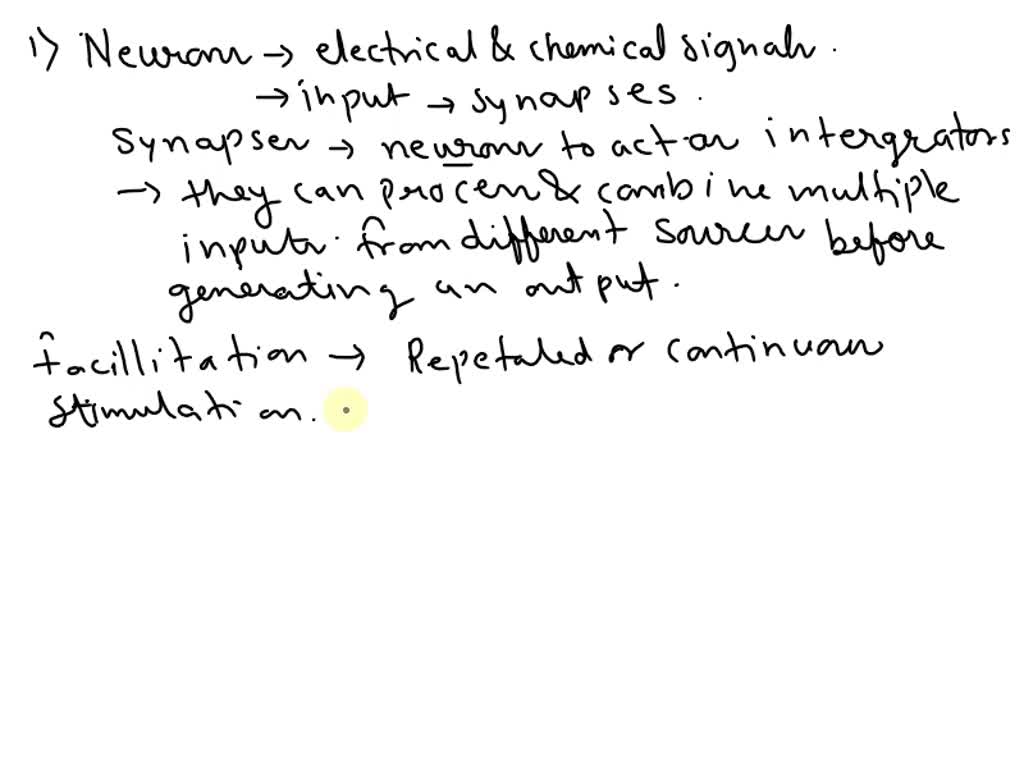 1) Neurons → electrical & chemical signals.
→ input → synapses.
Synapses → neurons to act as intergrators
→ they can process & combine multiple
inputs from different sources before
generating an output.
facillitation → Repetated or continuous
stimulation.